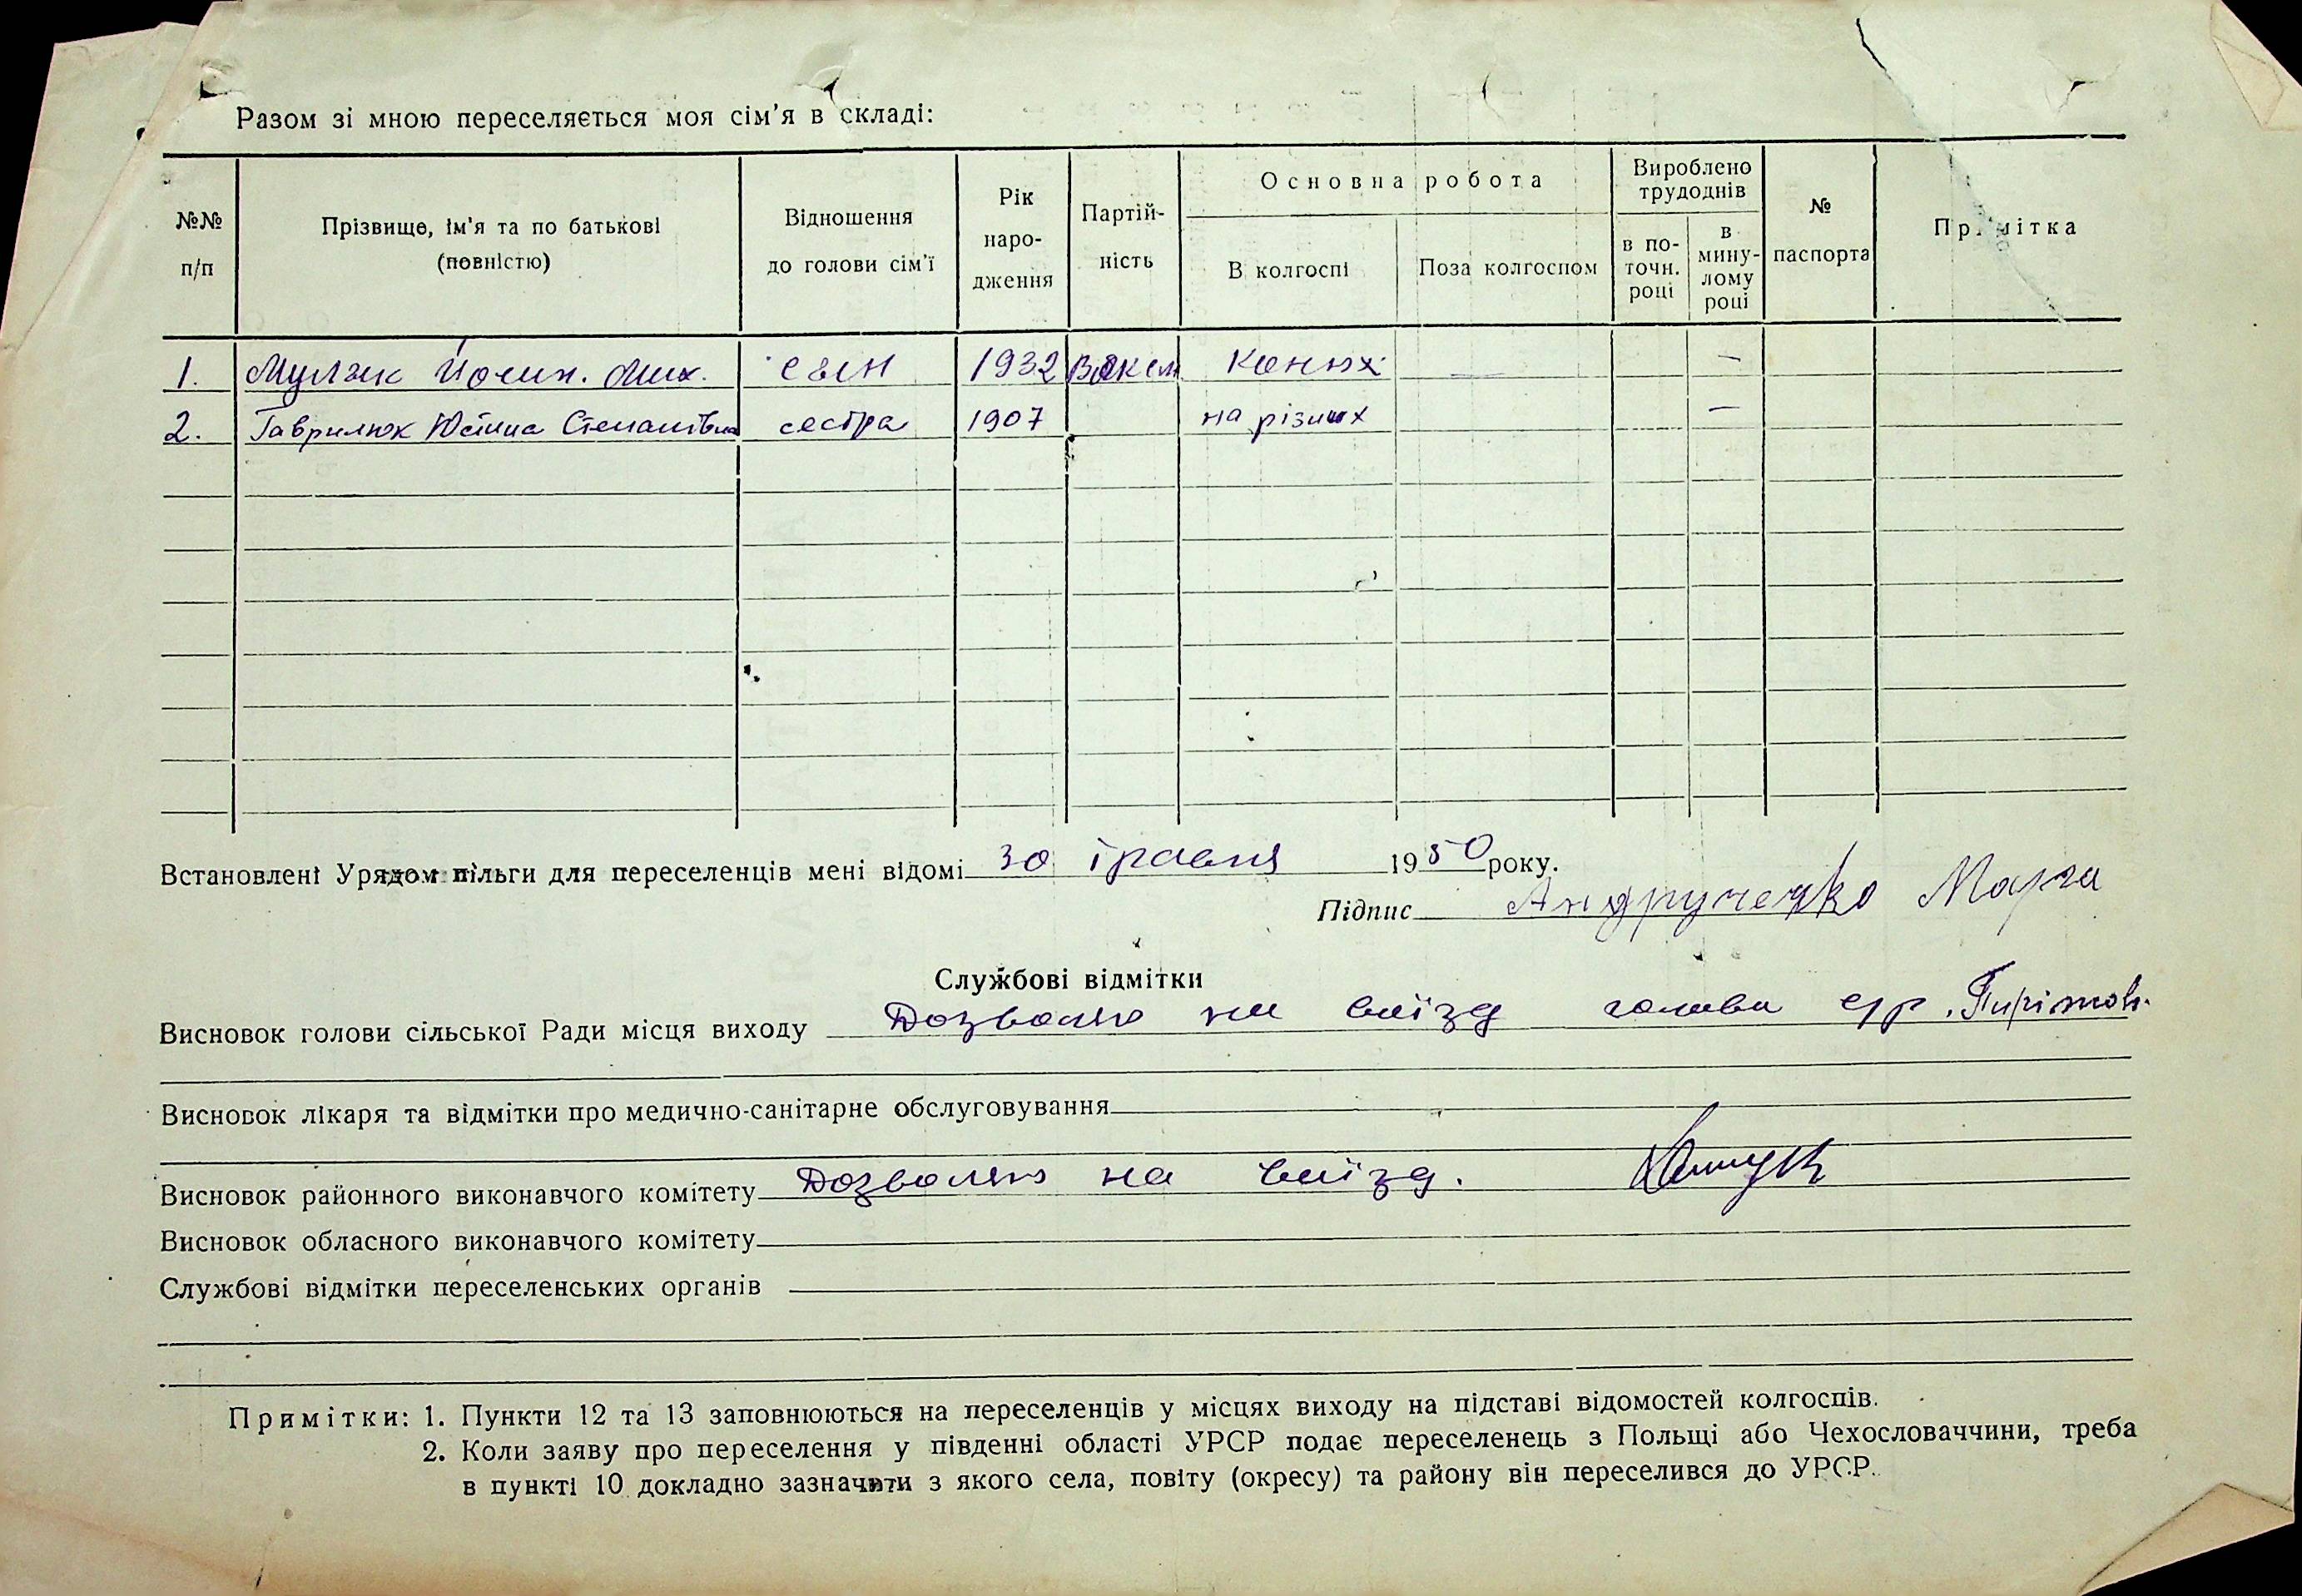 Разом зі мною переселяється моя сім'я в складі:
№№ п/п
Прізвище, ім'я та по батькові (повністю)
Відношення до голови сім'ї
Рік народження
Партійність
Основна робота
В колгоспі
Поза колгоспом
Вироблено трудоднів
в поточн. році
в минулому році
№ паспорта
Примітка
1. Мих. сын 1932 —
2. Гаврилюк Юстина Степанівна сестра 1907 на різних —
Встановлені Урядом пільги для переселенців мені відомі 30 травня 1950 року.
Підпис
Службові відмітки
Висновок голови сільської Ради місця виходу Дозволяю на виїзд голова с/р.
Висновок лікаря та відмітки про медично-санітарне обслуговування
Висновок районного виконавчого комітету Дозволяю на виїзд.
Висновок обласного виконавчого комітету
Службові відмітки переселенських органів
Примітки: 1. Пункти 12 та 13 заповнюються на переселенців у місцях виходу на підставі відомостей колгоспів.
2. Коли заяву про переселення у південні області УРСР подає переселенець з Польщі або Чехословаччини, треба
в пункті 10 докладно зазначити з якого села, повіту (окресу) та району він переселився до УРСР.